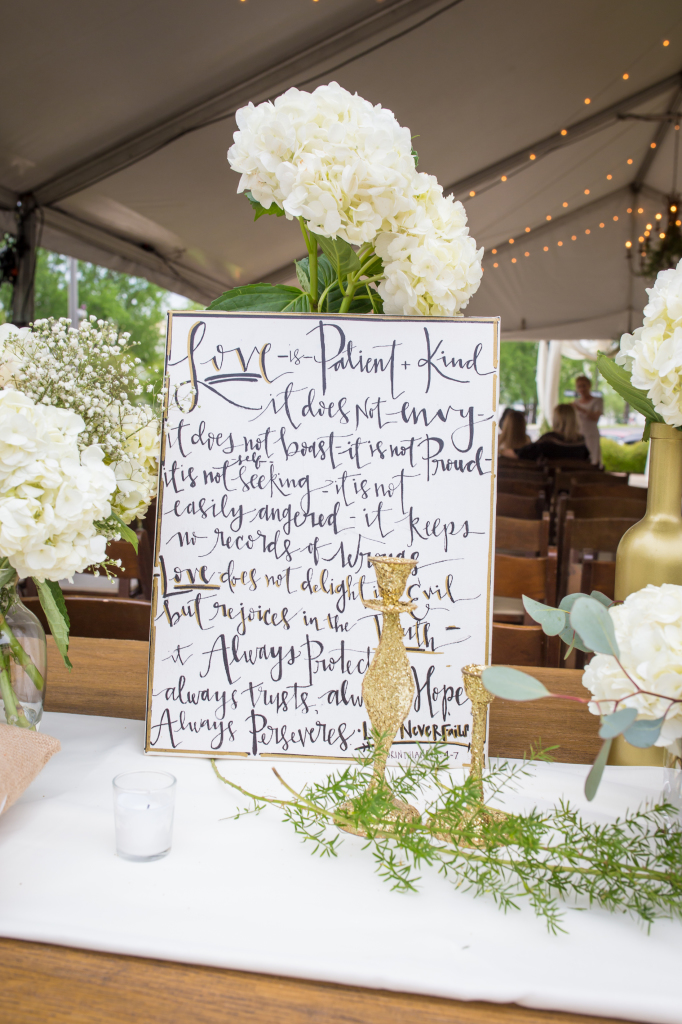 Love -is- Patient + Kind
it does Not -envy-
it does not boast - it is not Proud
it is not self seeking - it is not
easily angered - it keeps
no records of wrongs
Love does not delight in Evil
but rejoices in the Truth -
it Always Protects
always trusts, always Hopes
Always Perseveres. Love Never Fails